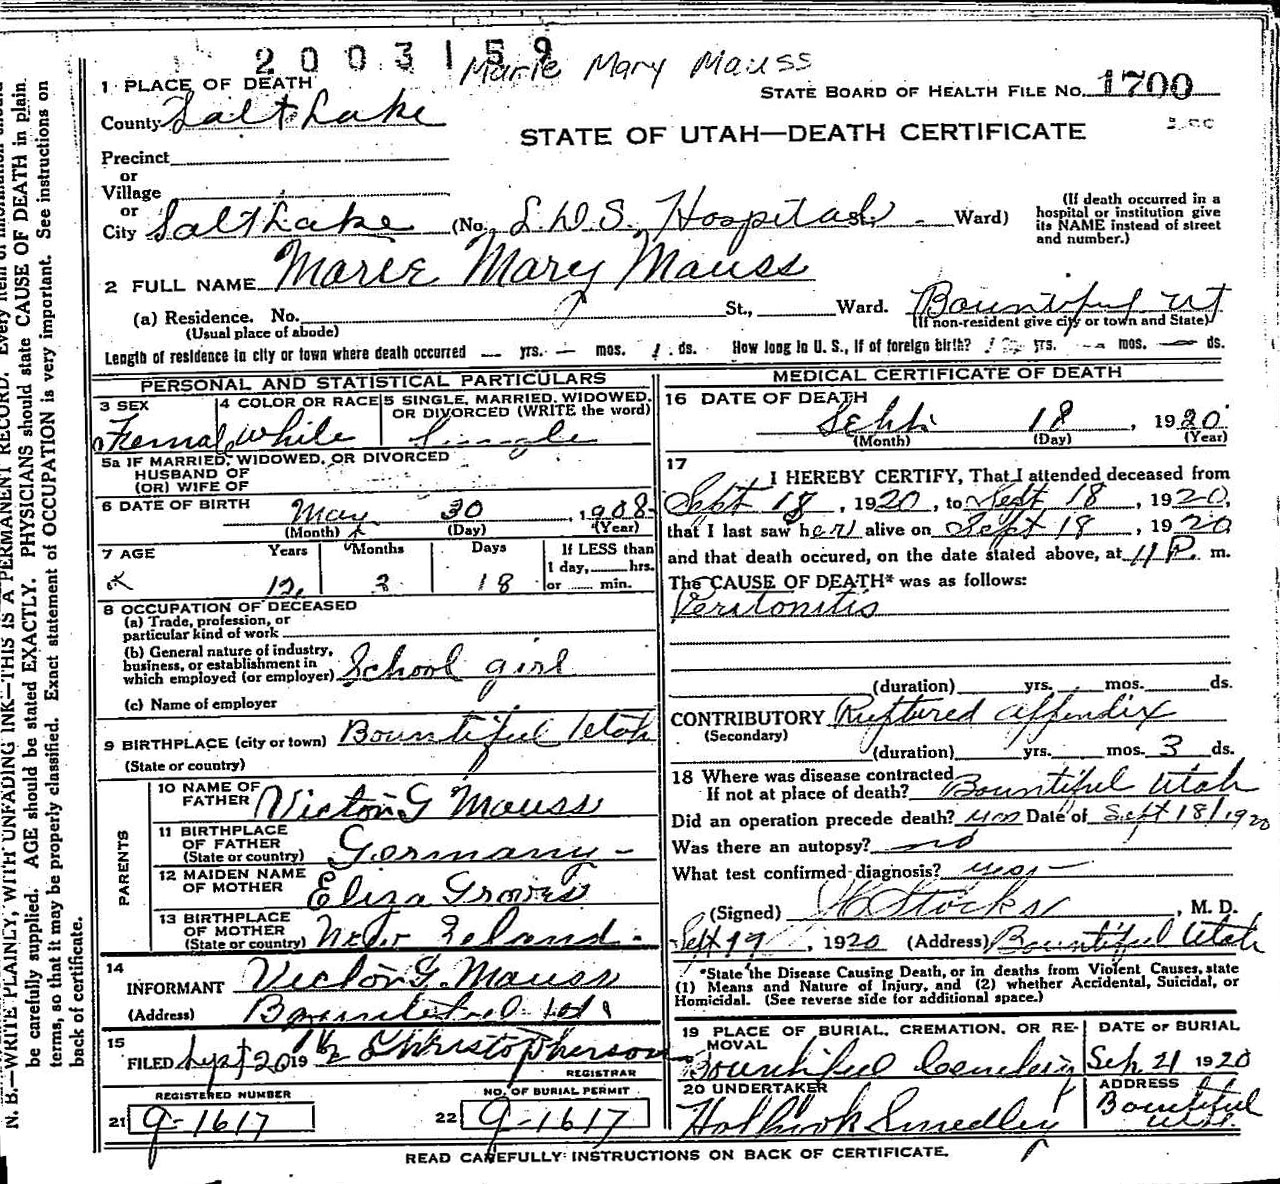 2003159
Marie Mary Mauss
1 PLACE OF DEATH
STATE BOARD OF HEALTH FILE NO. 1700
County Salt Lake
STATE OF UTAH—DEATH CERTIFICATE
Precinct
or
Village
or
City Salt Lake (No. L.D.S. Hospital St. Ward)
(If death occurred in a hospital or institution give its NAME instead of street and number.)
2 FULL NAME Marie Mary Mauss
(a) Residence. No. St., Ward. Bountiful Ut
(Usual place of abode) (If non-resident give city or town and State)
Length of residence in city or town where death occurred — yrs. — mos. 1 ds. How long in U. S., if of foreign birth? yrs. mos. ds.
PERSONAL AND STATISTICAL PARTICULARS
3 SEX Female
4 COLOR OR RACE White
5 SINGLE, MARRIED, WIDOWED, OR DIVORCED (WRITE the word) Single
5a IF MARRIED, WIDOWED, OR DIVORCED
HUSBAND OF
(OR) WIFE OF
6 DATE OF BIRTH May 30, 1908
(Month) (Day) (Year)
7 AGE Years Months Days If LESS than
1 day, hrs.
or min.
12 3 18
8 OCCUPATION OF DECEASED
(a) Trade, profession, or
particular kind of work
(b) General nature of industry,
business, or establishment in
which employed (or employer) School girl
(c) Name of employer
9 BIRTHPLACE (city or town) Bountiful Utah
(State or country)
PARENTS
10 NAME OF
FATHER Victor G Mauss
11 BIRTHPLACE
OF FATHER
(State or country) Germany -
12 MAIDEN NAME
OF MOTHER Eliza Groves
13 BIRTHPLACE
OF MOTHER
(State or country) New Zeland.
14
INFORMANT Victor G. Mauss
(Address) Bountiful
15
FILED Sept 20 19 Christopherson
REGISTRAR
REGISTERED NUMBER
21 9-1617
NO. OF BURIAL PERMIT
22 9-1617
MEDICAL CERTIFICATE OF DEATH
16 DATE OF DEATH
Sept. 18, 1920
(Month) (Day) (Year)
17
I HEREBY CERTIFY, That I attended deceased from
Sept 18, 1920, to Sept 18, 1920,
that I last saw her alive on Sept 18, 1920
and that death occured, on the date stated above, at 11 P. m.
The CAUSE OF DEATH* was as follows:
Peritonitis
(duration) yrs. mos. ds.
CONTRIBUTORY Ruptured appendix
(Secondary)
(duration) yrs. mos. 3 ds.
18 Where was disease contracted
If not at place of death? Bountiful Utah
Did an operation precede death? yes Date of Sept 18/1920
Was there an autopsy? no
What test confirmed diagnosis?
(Signed) Stocks, M. D.
Sept 19, 1920 (Address) Bountiful Utah
*State the Disease Causing Death, or in deaths from Violent Causes, state
(1) Means and Nature of Injury, and (2) whether Accidental, Suicidal, or
Homicidal. (See reverse side for additional space.)
19 PLACE OF BURIAL, CREMATION, OR RE-
MOVAL
Bountiful Cemetery
DATE OF BURIAL
Sep. 21 1920
20 UNDERTAKER
Holbrook Smedley
ADDRESS
Bountiful
Utah
READ CAREFULLY INSTRUCTIONS ON BACK OF CERTIFICATE.
N. B.—WRITE PLAINLY, WITH UNFADING INK—THIS IS A PERMANENT RECORD. Every item of information should
be carefully supplied. AGE should be stated EXACTLY. PHYSICIANS should state CAUSE OF DEATH in plain
terms, so that it may be properly classified. Exact statement of OCCUPATION is very important. See instructions on
back of certificate.